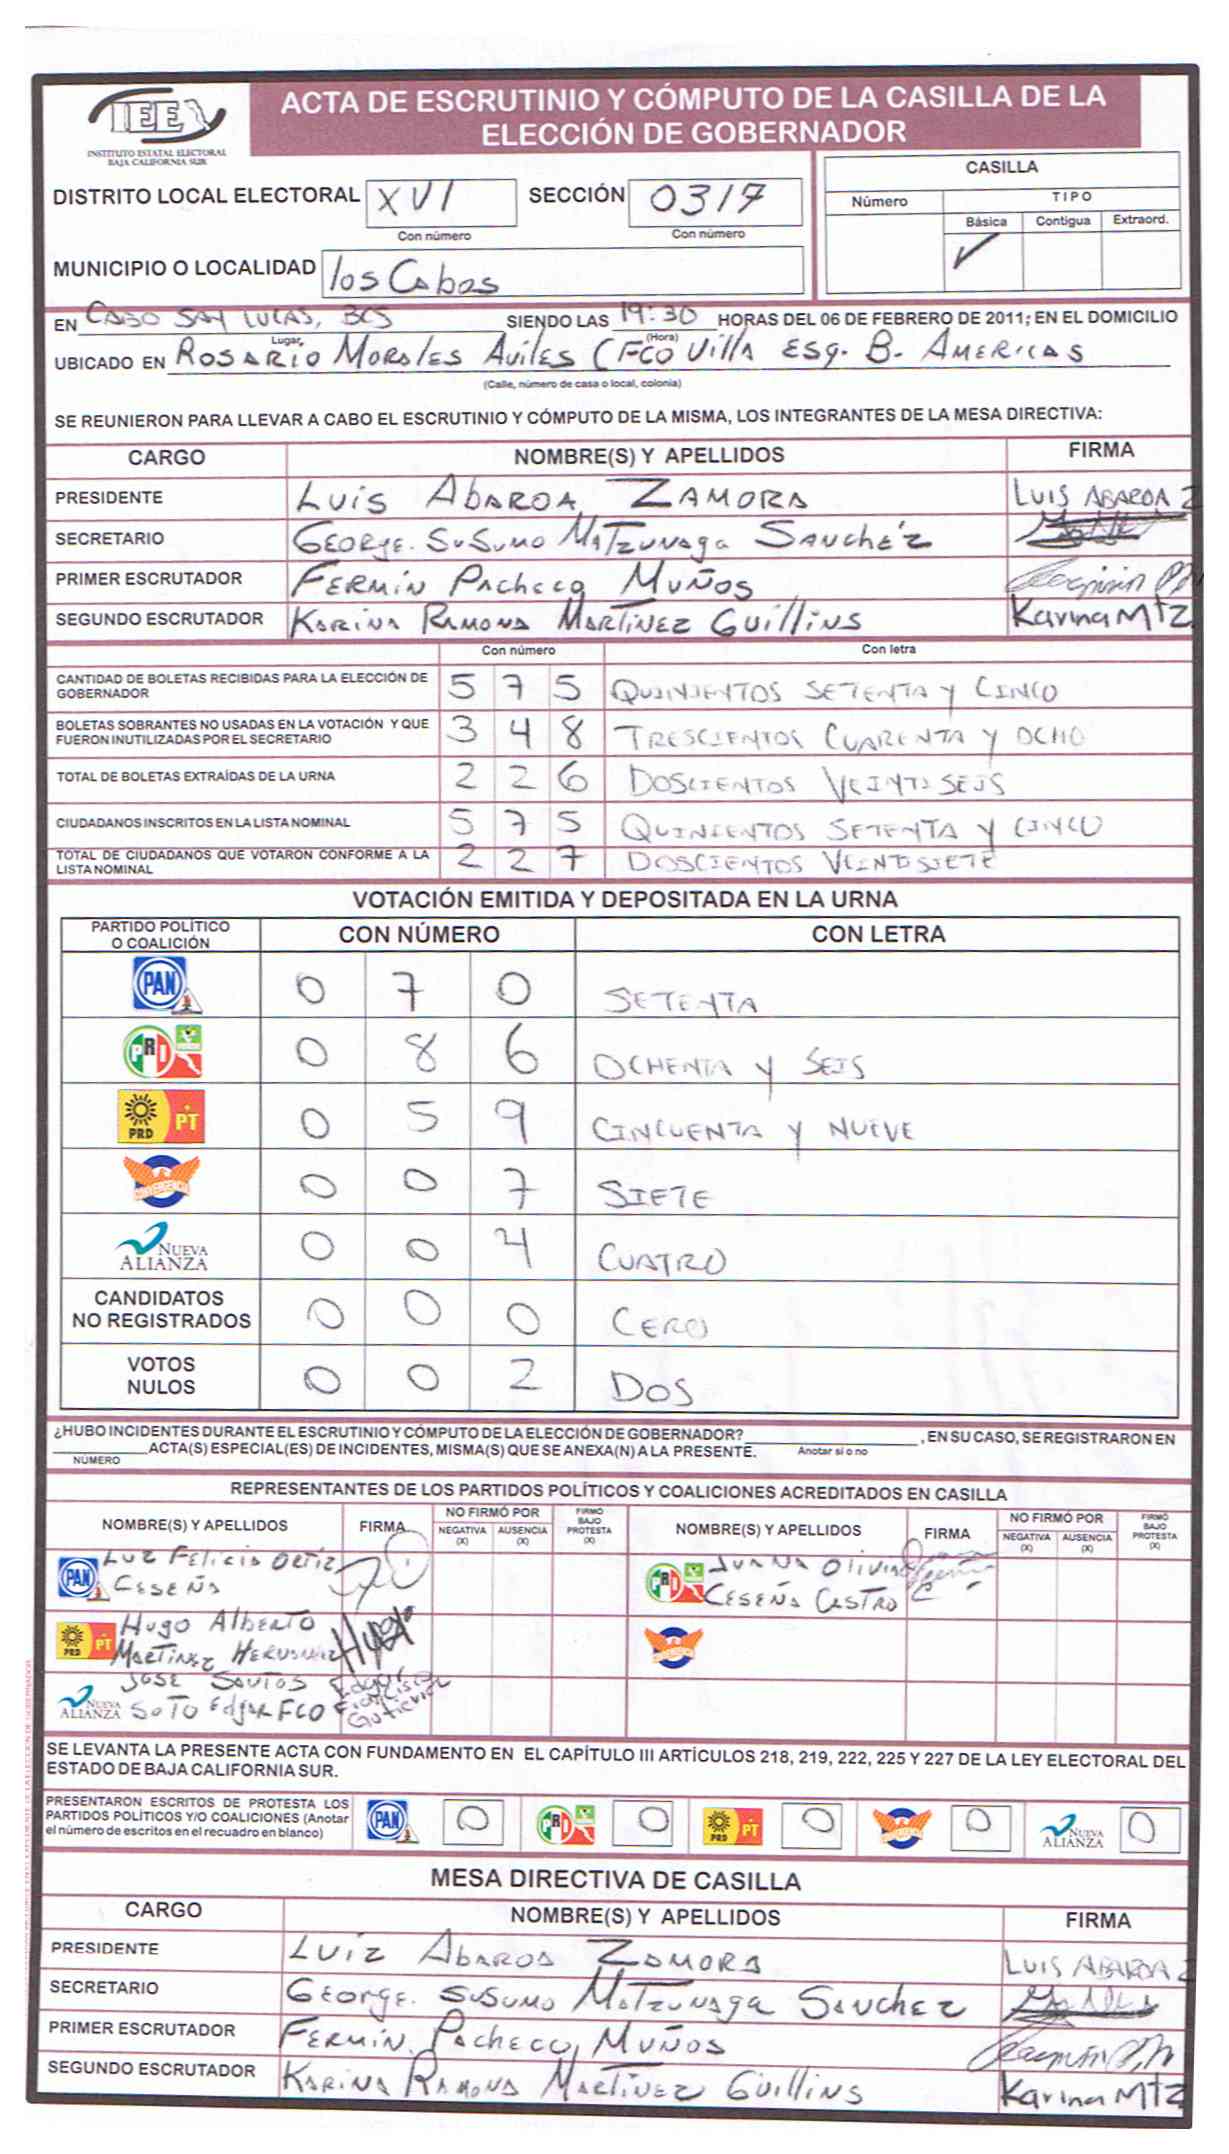 IEE
INSTITUTO ESTATAL ELECTORAL
BAJA CALIFORNIA SUR
ACTA DE ESCRUTINIO Y CÓMPUTO DE LA CASILLA DE LA
ELECCIÓN DE GOBERNADOR
DISTRITO LOCAL ELECTORAL XVI SECCIÓN 0317
Con número Con número
MUNICIPIO O LOCALIDAD los Cabos
CASILLA
Número TIPO
Básica Contigua Extraord.
✓
EN CABO SAN LUCAS, BCS SIENDO LAS 19:30 HORAS DEL 06 DE FEBRERO DE 2011; EN EL DOMICILIO
Lugar, (Hora)
UBICADO EN ROSARIO MORALES AVILES (FCO VILLA ESQ. B. AMERICAS
(Calle, número de casa o local, colonia)
SE REUNIERON PARA LLEVAR A CABO EL ESCRUTINIO Y CÓMPUTO DE LA MISMA, LOS INTEGRANTES DE LA MESA DIRECTIVA:
CARGO NOMBRE(S) Y APELLIDOS FIRMA
PRESIDENTE LUIS ABAROA ZAMORA LUIS ABAROA Z
SECRETARIO GEORGE. SUSUMO MATZUNAGA SANCHÉZ
PRIMER ESCRUTADOR FERMÍN PACHECO MUÑOS
SEGUNDO ESCRUTADOR KARINA RAMONA MARTÍNEZ GUILLINS Karina MTZ
Con número Con letra
CANTIDAD DE BOLETAS RECIBIDAS PARA LA ELECCIÓN DE
GOBERNADOR 5 7 5 QUINIENTOS SETENTA Y CINCO
BOLETAS SOBRANTES NO USADAS EN LA VOTACIÓN Y QUE
FUERON INUTILIZADAS POR EL SECRETARIO 3 4 8 TRESCIENTOS CUARENTA Y OCHO
TOTAL DE BOLETAS EXTRAÍDAS DE LA URNA 2 2 6 DOSCIENTOS VEINTISEIS
CIUDADANOS INSCRITOS EN LA LISTA NOMINAL 5 7 5 QUINIENTOS SETENTA Y CINCO
TOTAL DE CIUDADANOS QUE VOTARON CONFORME A LA
LISTA NOMINAL 2 2 7 DOSCIENTOS VEINTISIETE
VOTACIÓN EMITIDA Y DEPOSITADA EN LA URNA
PARTIDO POLÍTICO
O COALICIÓN CON NÚMERO CON LETRA
PAN 0 7 0 SETENTA
PRI 0 8 6 OCHENTA Y SEIS
PRD PT 0 5 9 CINCUENTA Y NUEVE
CONVERGENCIA 0 0 7 SIETE
NUEVA
ALIANZA 0 0 4 CUATRO
CANDIDATOS
NO REGISTRADOS 0 0 0 CERO
VOTOS
NULOS 0 0 2 DOS
¿HUBO INCIDENTES DURANTE EL ESCRUTINIO Y CÓMPUTO DE LA ELECCIÓN DE GOBERNADOR? , EN SU CASO, SE REGISTRARON EN
ACTA(S) ESPECIAL(ES) DE INCIDENTES, MISMA(S) QUE SE ANEXA(N) A LA PRESENTE. Anotar sí o no
NÚMERO
REPRESENTANTES DE LOS PARTIDOS POLÍTICOS Y COALICIONES ACREDITADOS EN CASILLA
NOMBRE(S) Y APELLIDOS FIRMA NO FIRMÓ POR NEGATIVA (X) AUSENCIA (X) FIRMÓ BAJO PROTESTA (X) NOMBRE(S) Y APELLIDOS FIRMA NO FIRMÓ POR NEGATIVA (X) AUSENCIA (X) FIRMÓ BAJO PROTESTA (X)
PAN LUZ FELICIA ORTIZ
CESEÑA
PRI JUANA OLIVIA
CESEÑA CASTRO
PRD PT HUGO ALBERTO
MARTINEZ Hugo
CONVERGENCIA
NUEVA
ALIANZA JOSE SANTOS
SOTO Edgar FCO Edgar
SE LEVANTA LA PRESENTE ACTA CON FUNDAMENTO EN EL CAPÍTULO III ARTÍCULOS 218, 219, 222, 225 Y 227 DE LA LEY ELECTORAL DEL
ESTADO DE BAJA CALIFORNIA SUR.
PRESENTARON ESCRITOS DE PROTESTA LOS
PARTIDOS POLÍTICOS Y/O COALICIONES (Anotar
el número de escritos en el recuadro en blanco)
PAN 0 PRI 0 PRD PT 0 CONVERGENCIA 0 NUEVA ALIANZA 0
MESA DIRECTIVA DE CASILLA
CARGO NOMBRE(S) Y APELLIDOS FIRMA
PRESIDENTE LUIZ ABAROA ZAMORA LUIS ABAROA Z
SECRETARIO GEORGE. SUSUMO MATZUNAGA SANCHEZ
PRIMER ESCRUTADOR FERMÍN. PACHECO MUÑOS
SEGUNDO ESCRUTADOR KARINA RAMONA MARTÍNEZ GUILLINS Karina MTZ